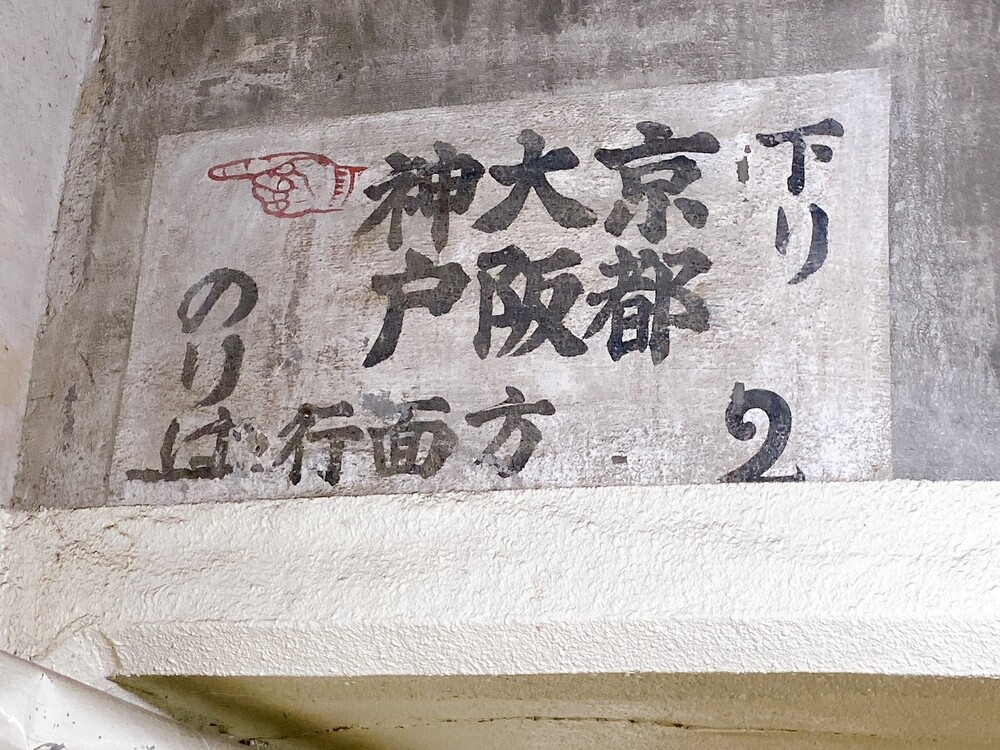 下り
2
京都
大阪
神戸
方面行
のりば